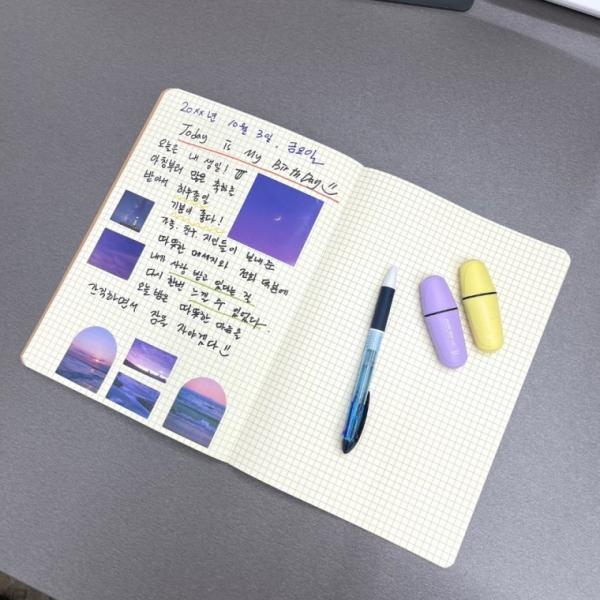 20××년 10월 3일. 금요일
Today Is My BirthDay
오늘은 내 생일!
아침부터 많은 축하를
받아서 하루종일
기분이 좋다!
가족, 친구, 지인들이 보내준
따뜻한 메세지와 전화 덕분에
내가 사랑 받고 있다는 걸
다시 한번 느낄 수 있었다.
오늘 밤은 따뜻한 마음을
간직하면서 잠을 자야겠다